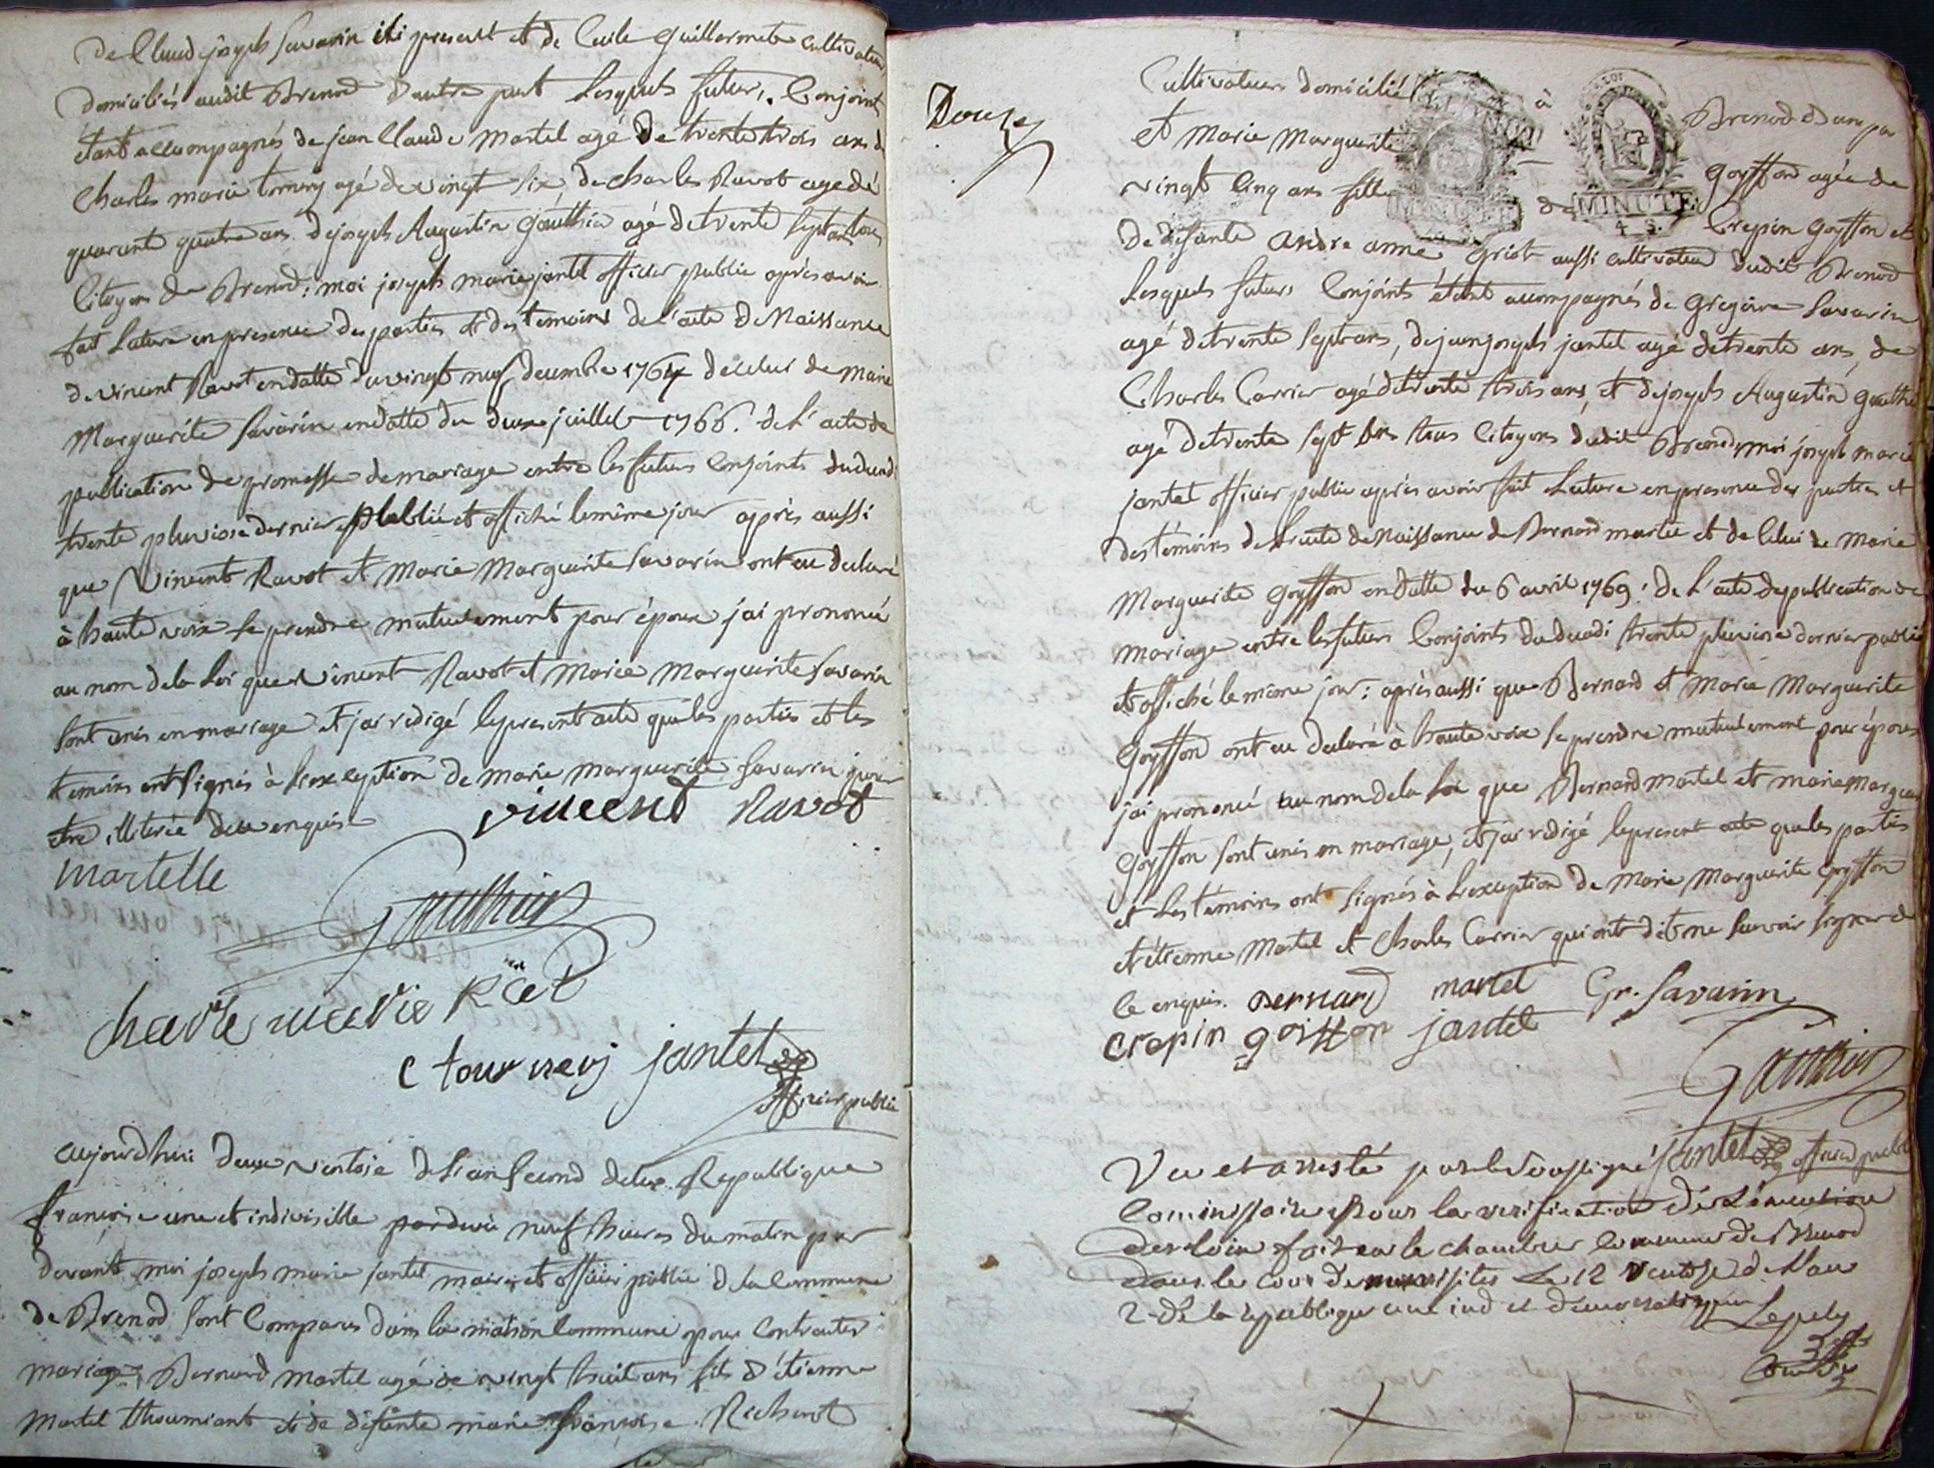 De Claud joseph Savarin ici present et de Cecile Guillermet cultivateur
domiciliés audit Brenod d'autre part Lesquels futurs Conjoint
étant accompagnés de jean Claude Martel agé de trente trois ans de
Charles marie torney agé de vingt six de charles Ravot agé de
quarant quatre ans de joseph Augustin Gauthier agé de trente sept ans tous
Citoyens de Brenod: moi joseph marie jantet officier public après avoir
fait Lecture en presence des parties et des temoins de l'acte de Naissance
de vincent Ravot en datte du vingt neuf decembre 1764 de celui de Marie
Marguerite Savarin en datte du deux juillet 1766. de L'acte de
publication de promesse de mariage entre les futurs Conjoints du duodi
trente pluviose dernier publié et affiché le même jour après aussi
que Vincent Ravot et Marie Marguerite Savarin ont eu declaré
à haute voix se prendre mutuelement pour époux j'ai prononcé
au nom de la Loi que Vincent Ravot et Marie Marguerite Savarin
sont unis en mariage et j'ai redigé le present acte que les parties et les
temoins ont signés à L'exception de marie marguerite Savarin pour
etre illiterée de ce enquise
vincent Ravot
martelle
Gauthier
charle marie
c tournery jantet
officier public
aujourdhui deux ventose de L'an second de la Republique
françoise une et indivisible pardevie neuf heures du matin par
devant moi joseph marie jantet maire et officier public de la Commune
de Brenod sont Comparus dans la maison Commune pour Contracter
mariage Bernard Martel agé de vingt huit ans fils d'étienne
Martel et de défunte marie françoise Richerot
Douze
Cultivateurs domicilié à Brenod d'une par
et Marie Marguerite Goyffon agée de
vingt Cinq ans fille de Crepin Goyffon et
MINUTE
MINUTE
4 S.
De défunte Andre anne Griot aussi cultivateur dudit Brenod
Lesquels futurs Conjoints étant accompagnés de Gregoire Savarin
agé de trente sept ans, de jean joseph jantet agé de trente ans, de
Charles Carrier agé de trente trois ans, et de joseph Augustin Gauthi
agé de trente sept ans tous Citoyens dudit Brenod; moi joseph marie
jantet officier public après avoir fait Lecture en presence des parties et
des temoins de L'acte de Naissance de Bernard martel et de Celui de Marie
Marguerite Goyffon en datte du 6 avril 1769. de L'acte de publication de
mariage entre les futurs Conjoints du duodi trente pluviose dernier publié
et affiché le même jour: après aussi que Bernard et Marie Marguerite
Goyffon ont eu declaré à haute voix se prendre mutuelement pour époux
j'ai prononcé au nom de la Loi que Bernard Martel et marie Margue
Goyffon sont unis en mariage, et j'ai redigé le present acte que les parties
et Les temoins ont signés à L'exception de Marie Marguerite Goyffon
et étienne Martel et Charles Carrier qui ont dit ne savoir signer de
ce enquis. Bernard martel Gr. Savarin
crepin goiffon jantet
Gauthier
jantet officier public
Vu et arresté par le Soussigné
Commissaire pour la verification de l'execution
des loix fait en la chambre commune de Brenod
dans le cour de mes visites Le 12 Ventose de l'an
2e de la republique une ind et democratique